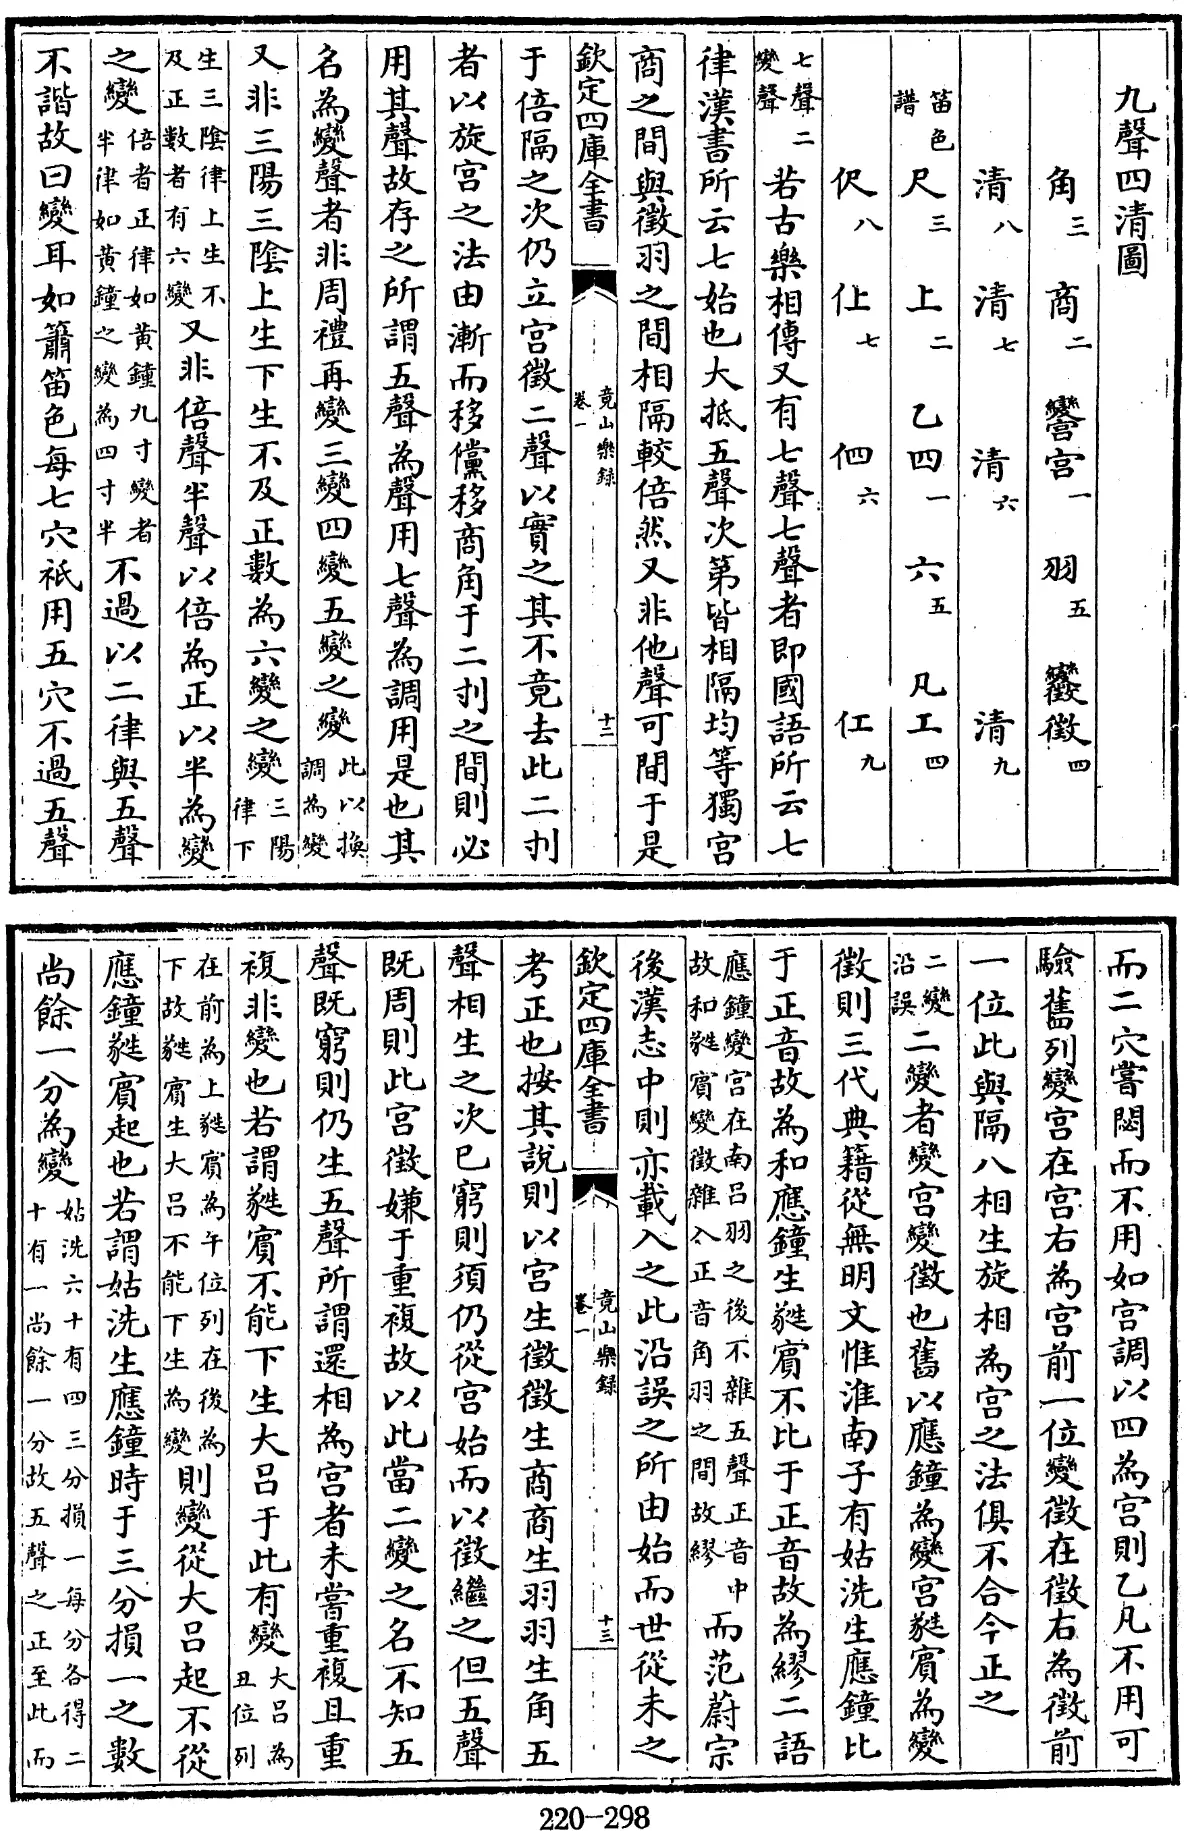 九聲四清圖
角三 商二 變宮宮一 羽五 變徵徵四
清八 清七 清六 清九
笛色譜 尺三 上二 乙四一 六五 凡工四
伬八 仩七 伵六 仜九
七聲二變聲 若古樂相傳又有七聲七聲者即國語所云七
律漢書所云七始也大抵五聲次第皆相隔均等獨宮
商之間與徵羽之間相隔較倍然又非他聲可間于是
欽定四庫全書 竟山樂録 卷一 十二
于倍隔之次仍立宮徵二聲以實之其不竟去此二刌
者以旋宮之法由漸而移儻移商角于二刌之間則必
用其聲故存之所謂五聲為聲用七聲為調用是也其
名為變聲者非周禮再變三變四變五變之變此以換調為變
又非三陽三陰上生下生不及正數為六變之變三陽律下
生三陰律上生不及正數者有六變又非倍聲半聲以倍為正以半為變
之變倍者正律如黃鐘九寸變者半律如黃鐘之變為四寸半不過以二律與五聲
不諧故曰變耳如簫笛色每七穴祇用五穴不過五聲
而二穴嘗閟而不用如宮調以四為宮則乙凡不用可
驗舊列變宮在宮右為宮前一位變徵在徵右為徵前
一位此與隔八相生旋相為宮之法俱不合今正之
二變沿誤 二變者變宮變徵也舊以應鐘為變宮蕤賓為變
徵則三代典籍從無明文惟淮南子有姑洗生應鐘比
于正音故為和應鐘生蕤賓不比于正音故為繆二語
應鐘變宮在南呂羽之後不雜五聲正音中故和蕤賓變徵雜入正音角羽之間故繆而范蔚宗
後漢志中則亦載入之此沿誤之所由始而世從未之
欽定四庫全書 竟山樂録 卷一 十三
考正也按其說則以宮生徵徵生商商生羽羽生角五
聲相生之次已窮則須仍從宮始而以徵繼之但五聲
既周則此宮徵嫌于重複故以此當二變之名不知五
聲既窮則仍生五聲所謂還相為宮者未嘗重複且重
複非變也若謂蕤賓不能下生大呂于此有變大呂為丑位列
在前為上蕤賓為午位列在後為下故蕤賓生大呂不能下生為變則變從大呂起不從
應鐘蕤賓起也若謂姑洗生應鐘時于三分損一之數
尚餘一分為變姑洗六十有四三分損一每分各得二十有一尚餘一分故五聲之正至此而
220-298